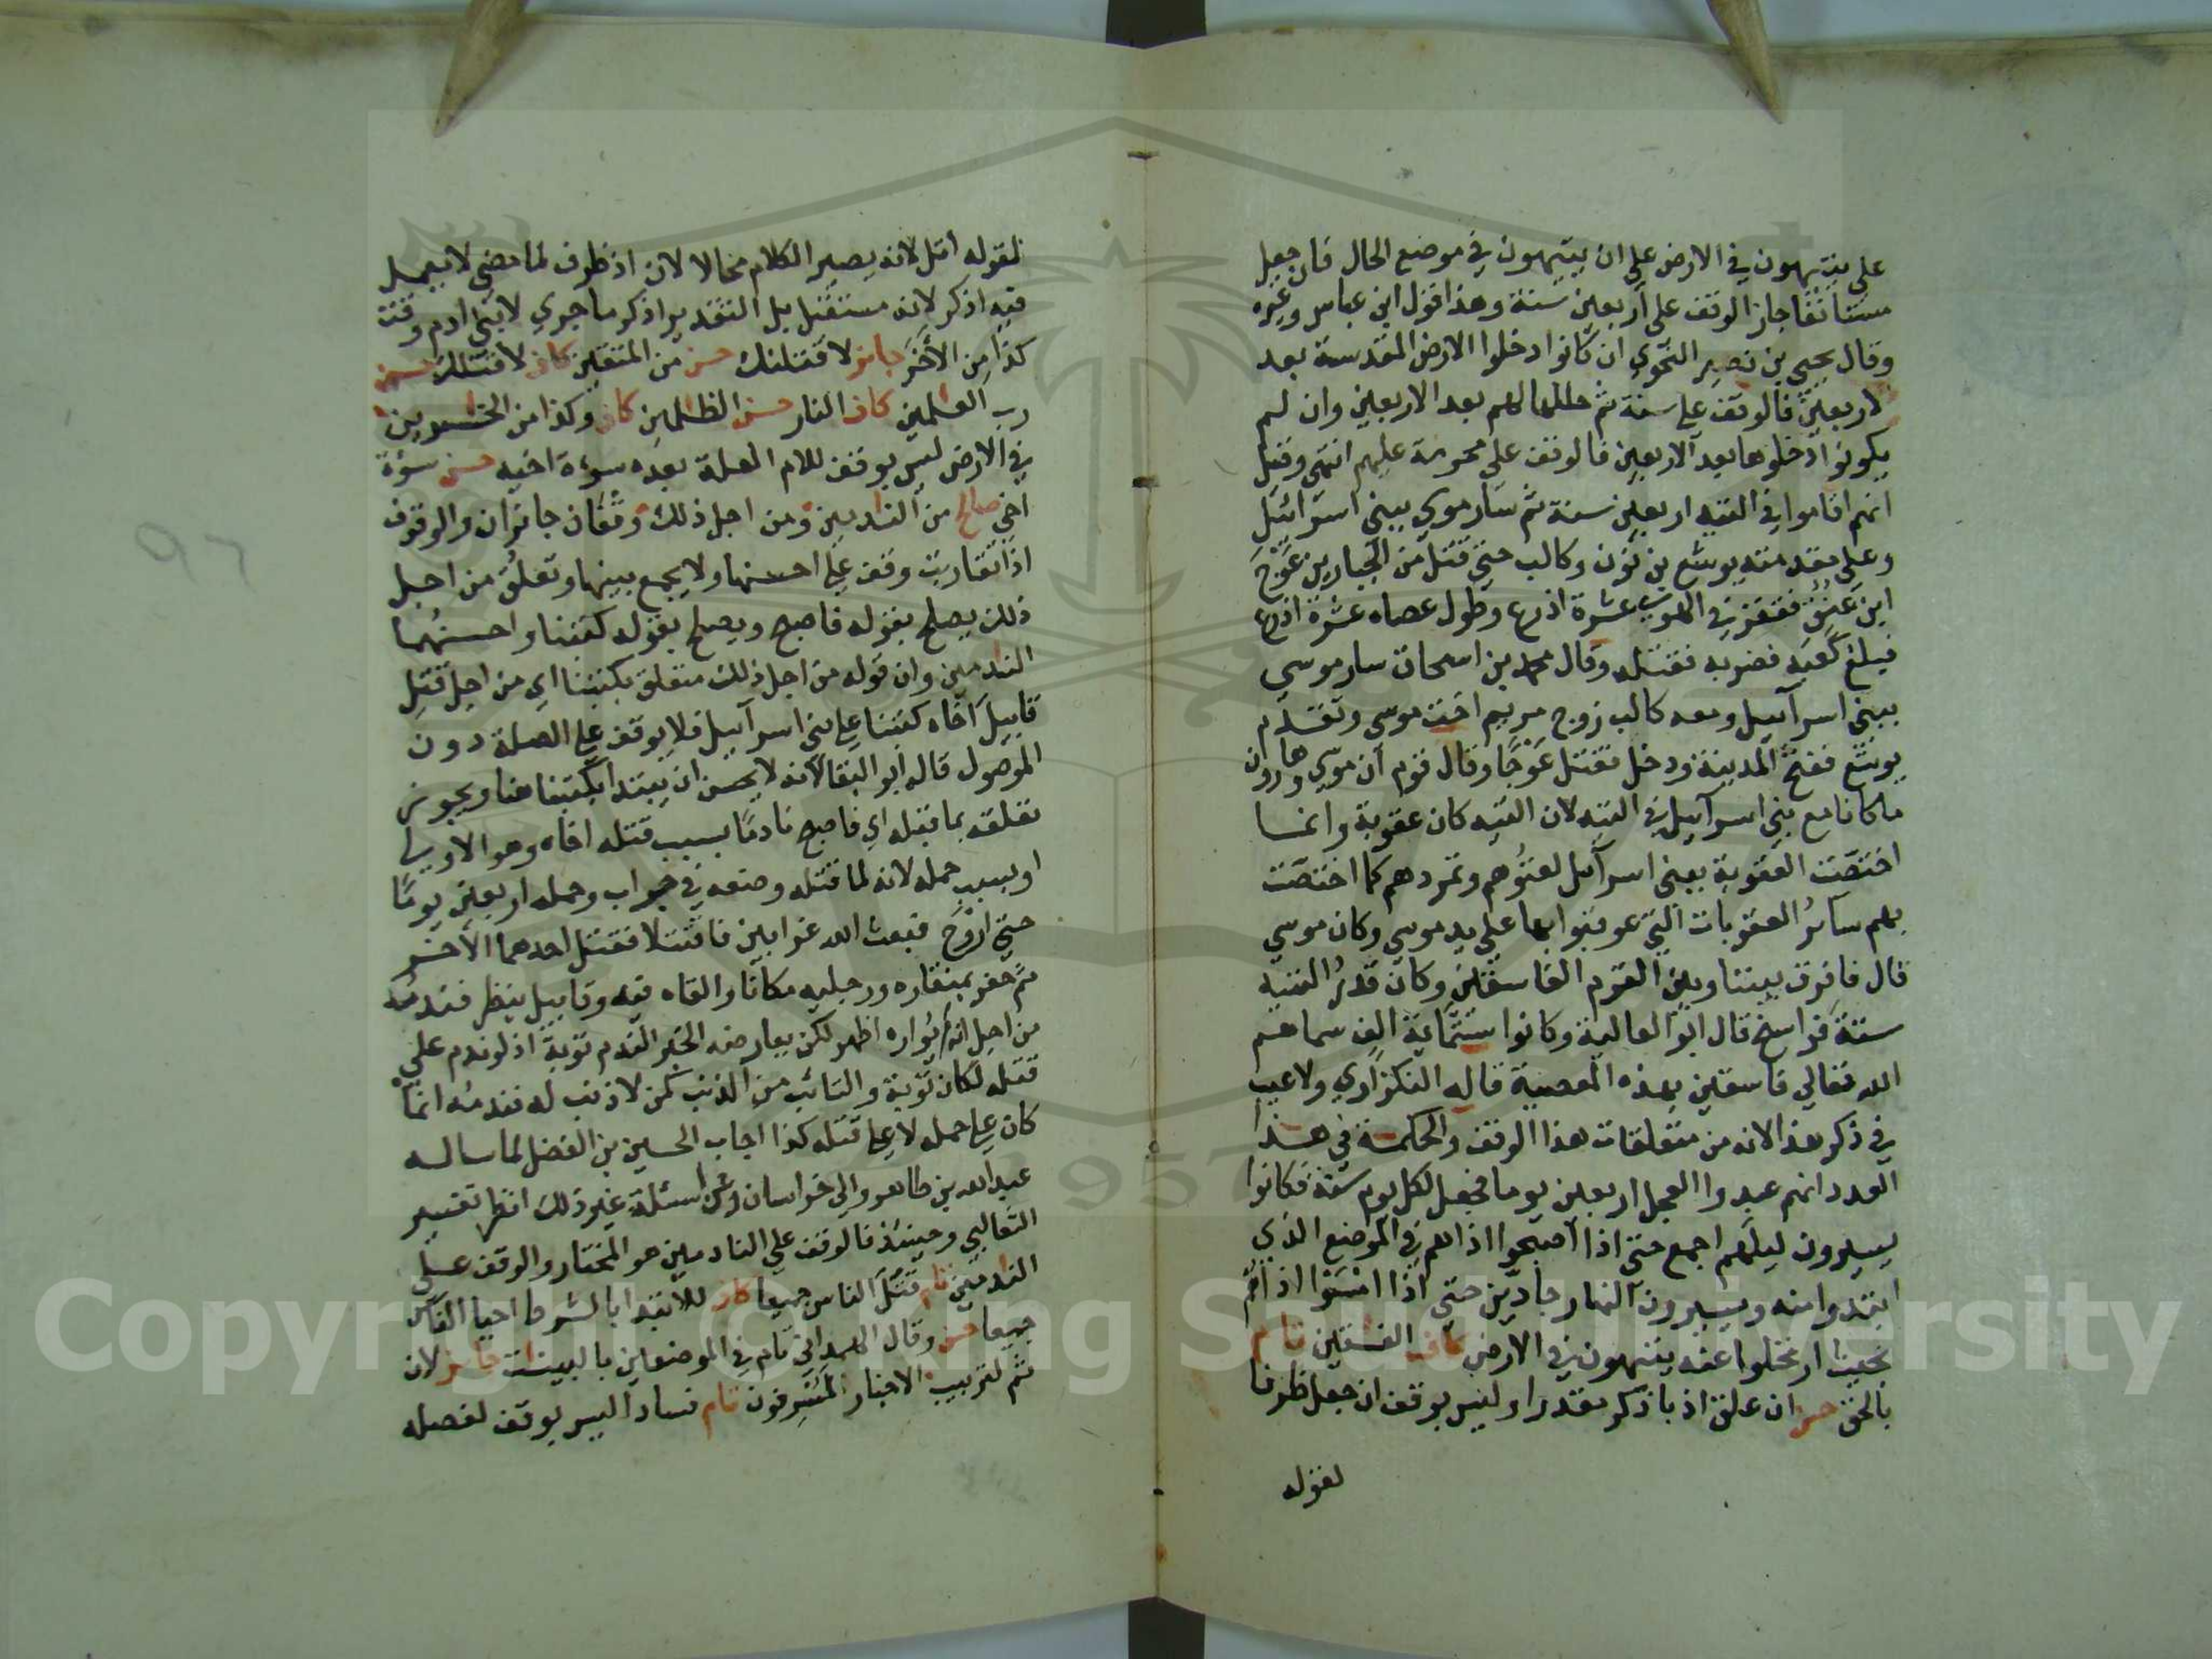 على يتيهون في الارض على ان يتيهون في موضع الحال فان جعل
مستانفا جاز الوقف على اربعين سنة وهذا قول ابن عباس وغيره
وقال يحيى بن نصير النحوي ان كانوا دخلوا الارض المقدسة بعد
الاربعين فالوقف على سنة ثم حللها لهم بعد الاربعين وان لم
يكونوا دخلوها بعد الاربعين فالوقف على محرمة عليهم انتهى وقيل
انهم اقاموا في التيه اربعين سنة ثم سار موسى ببني اسرائيل
وعلى مقدمته يوشع بن نون وكالب حتى قتل من الجبارين عوج
ابن عنق فقفز في الهوى عشرة اذرع وطول عصاه عشرة اذرع
فبلغ كعبه فضربه فقتله وقال محمد بن اسحاق سار موسى
ببني اسرآئيل ومعه كالب زوج مريم اخت موسى وتقدم
يوشع ففتح المدينة ودخل فقتل عوجا وقال قوم ان موسى وهارون
ما كانا مع بني اسرآئيل في التيه لان التيه كان عقوبة وانما
اختصت العقوبة ببني اسرآئل لعتوهم وتمردهم كما اختصت
بهم سآئر العقوبات التي عوقبوا بها على يد موسى وكان موسى
قال فافرق بيننا وبين القوم الفاسقين وكان قدر التيه
ستة فراسخ قال ابو العالية وكانوا ستمائة الف سماهم
الله تعالى فاسقين بهذه المعصية قاله النكزاوي ولا عيب
في ذكر هذا لانه من متعلقات هذا الوقف والحكمة في هذا
العدد انهم عبدوا العجل اربعين يوما فجعل لكل يوم سنة فكانوا
يسيرون ليلهم اجمع حتى اذا اصبحوا اذا هم في الموضع الذي
ابتدوا منه ويسيرون النهار جادين حتى اذا امسوا اذا هم
بحيث ارتحلوا عنه يتيهون في الارض كاف الفسقين تام
بالحق حسن ان علق اذ باذكر مقدرا وليس بوقف ان جعل ظرفا
لقوله
لقوله اتل لانه يصير الكلام محالا لان اذ ظرف لما مضى لا يعمل
فيه اذكر لانه مستقبل بل التقدير اذكر ما جرى لابني ادم وقت
كذا من الأخر جايز لاقتلنك حسن من المتقين كاف لاقتلك حسن
رب العلمين كاف النار حسن الظلمين كاف وكذا من الخسرين
في الارض ليس بوقف للام العلة بعده سوءة اخيه حسن سوءة
اخي صالح من الندمين ومن اجل ذلك وقفان جائزان والوقوف
اذا تقاربت وقف على احسنها ولا يجمع بينها وتعلق من اجل
ذلك يصلح بقوله فاصبح ويصلح بقوله كتبنا واحسنهما
الندمين وان قوله من اجل ذلك متعلق بكتبنا اي من اجل قتل
قابيل اخاه كتبنا على بني اسرآئيل فلا يوقف على الصلة دون
الموصول قاله ابو البقا لانه لا يحسن ان يبتدا بكتبنا هنا ويجوز
تعلقه بما قبله اي فاصبح نادما بسبب قتله اخاه وهو الاولى
او بسبب حمله لانه لما قتله وضعه في جراب وحمله اربعين يوما
حتى اروح فبعث الله غرابين فاقتتلا فقتل احدهما الآخر
ثم حفر بمنقاره ورجليه مكانا والقاه فيه وقابيل ينظر فندمه
من اجل انه لم يواره اظهر لكن يعارضه الخبر الندم توبة اذ لو ندم على
قتله لكان توبة والتائب من الذنب كمن لا ذنب له فندمه انما
كان على حمله لا على قتله كذا اجاب الحسين بن الفضل لما ساله
عبد الله بن طاهر والي خراسان وعن اسئلة غير ذلك انظر تفسير
الثعالبي وحينئذ فالوقف على النادمين هو المختار والوقف على
الندمين تام قتل الناس جميعا كاف للابتدا بالشرط احيا الناس
جميعا حسن وقال الهمداني تام في الموضعين بالبينت جايز لان
ثم لترتيب الاخبار لمسرفون تام فسادا ليس بوقف لفصله